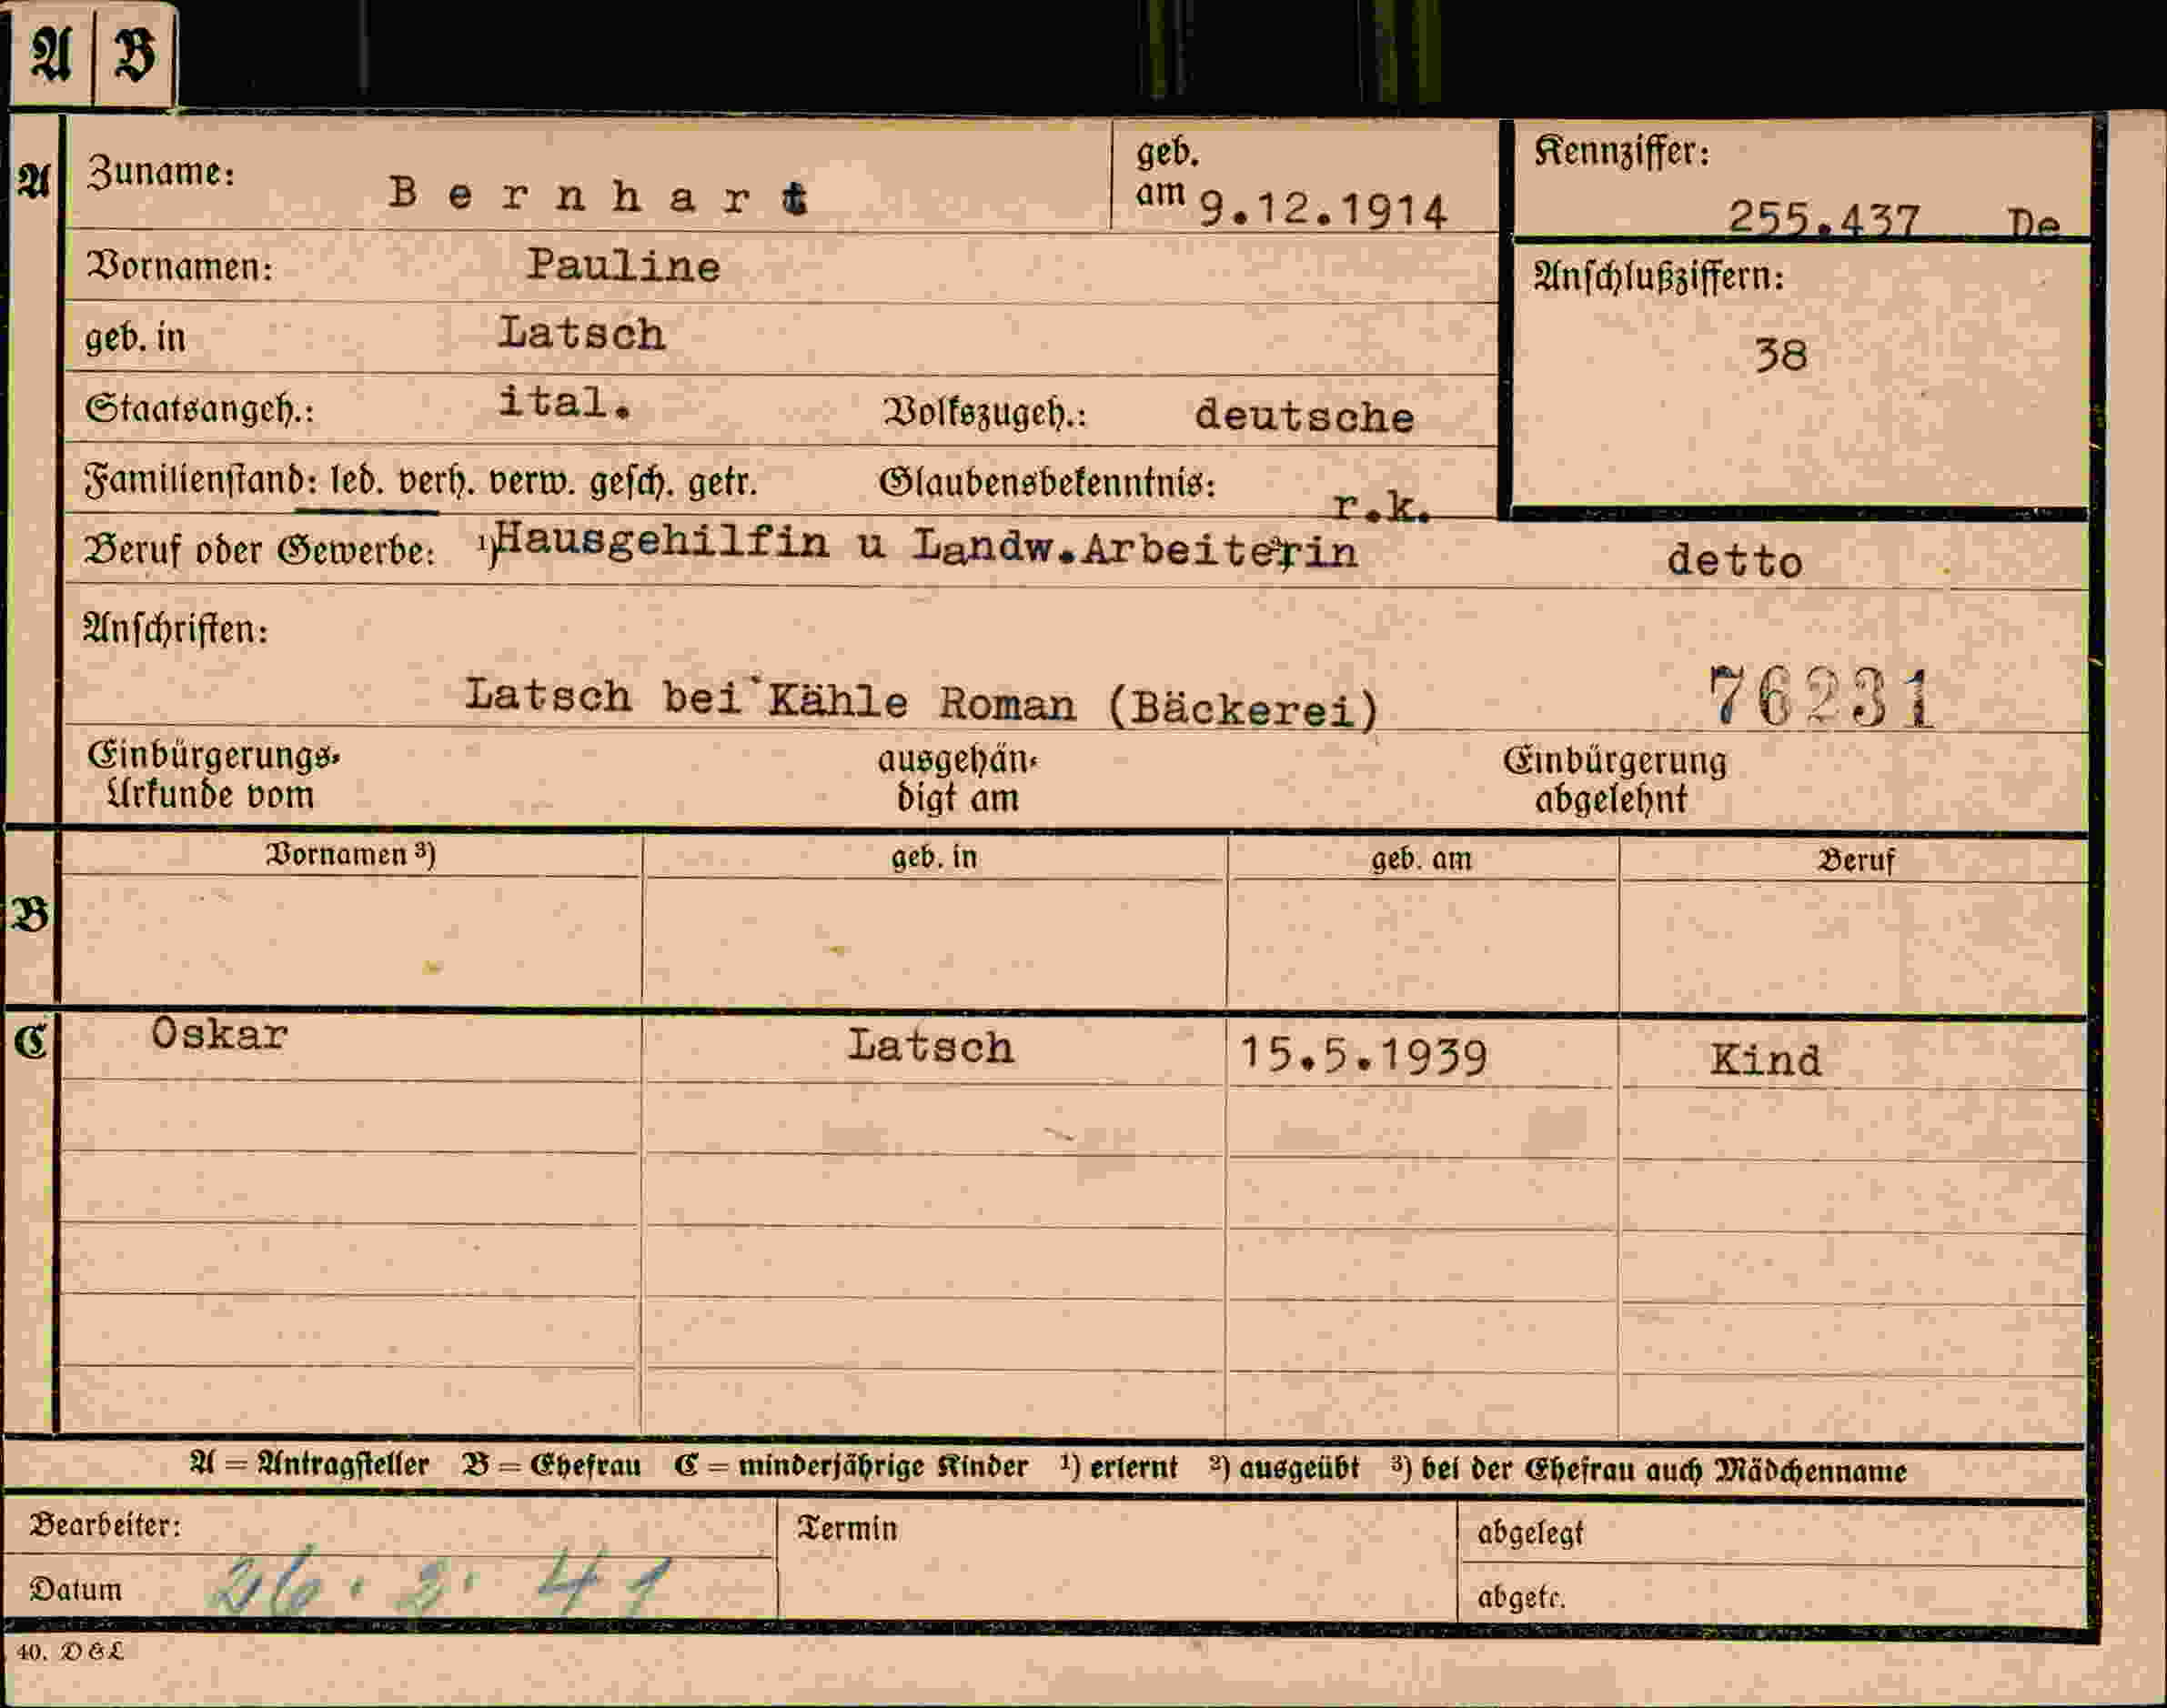 A B
A Zuname: Bernhart geb. am 9.12.1914 Kennziffer: 255.437 De
Vornamen: Pauline Anschlußziffern:
geb. in Latsch 38
Staatsangeh.: ital. Volkszugeh.: deutsche
Familienstand: led. verh. verw. gesch. getr. Glaubensbekenntnis: r.k.
Beruf oder Gewerbe: ¹)Hausgehilfin u Landw.Arbeiterin detto
Anschriften:
Latsch bei Kähle Roman (Bäckerei) 76231
Einbürgerungs- ausgehän- Einbürgerung
Urkunde vom digt am abgelehnt
Vornamen ³) geb. in geb. am Beruf
B
C Oskar Latsch 15.5.1939 Kind
A = Antragsteller B = Ehefrau C = minderjährige Kinder ¹) erlernt ²) ausgeübt ³) bei der Ehefrau auch Mädchenname
Bearbeiter: Termin abgelegt
Datum 26. 2. 41 abgetr.
40. D & L